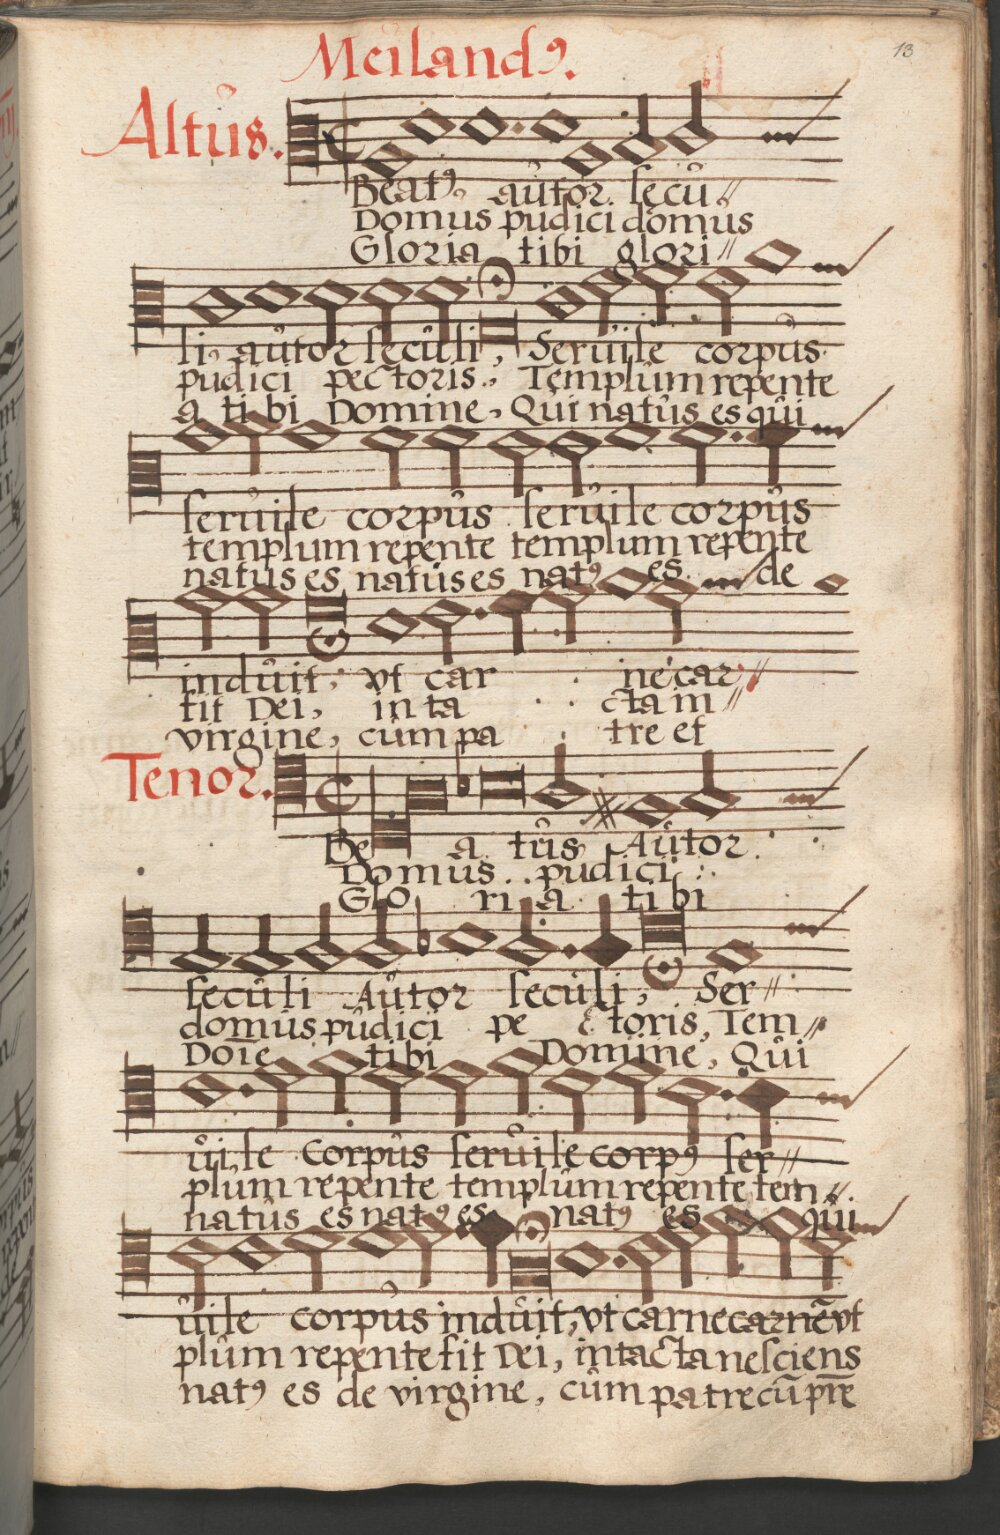 13
Meilandꝰ.
Altůs.
Beatꝰ aůtor seců//
Domus pudici domus
Gloria tibi glori//
li, aůtor secůli, Serůile corpůs
pudici pectoris., Templům repente
a tibi Domine, Qui natůs es qůi
serůile corpůs serůile corpůs
templum repente templum repente
natus es natůs es natꝰ es de
indůit, vt car ne car//
tit Dei, inta cta in//
virgine, cům pa tre et
Tenor.
Be a tůs Aůtor
Domus pudici
Glo ri a tibi
secůli Aůtor seculi, Ser//
domus půdici pe ctoris, Tem//
Doīe tibi Domine, Qůi
ůile Corpůs serůile corpꝰ ser//
plům repente templům repente tem//
natůs es natꝰ es natꝰ es qůi
ůile corpůs indůit, vt carne carnē vt
plům repente fit Dei, intacta nesciens
natꝰ es de virgine, cům patre cū pr̄e